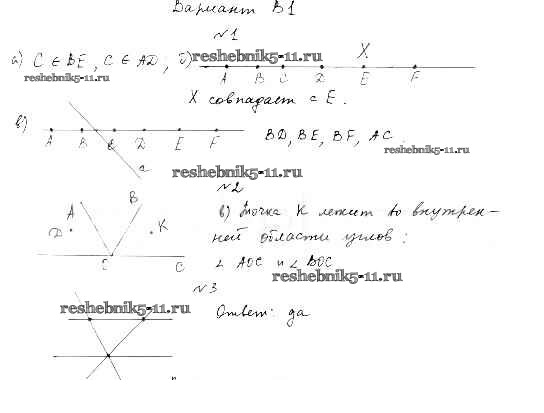 Вариант В1
№1
а) C ∈ BE, C ∈ AD, б) reshebnik5-11.ru X
reshebnik5-11.ru
A B C D E F
X совпадает с E.
в)
A B C D E F BD, BE, BF, AC
a
reshebnik5-11.ru
reshebnik5-11.ru
№2
A B в) Точка K лежит во внутрен-
D K ней области углов:
C ∠ AOC и ∠ BOC
reshebnik5-11.ru
№3
reshebnik5-11.ru
Ответ: да